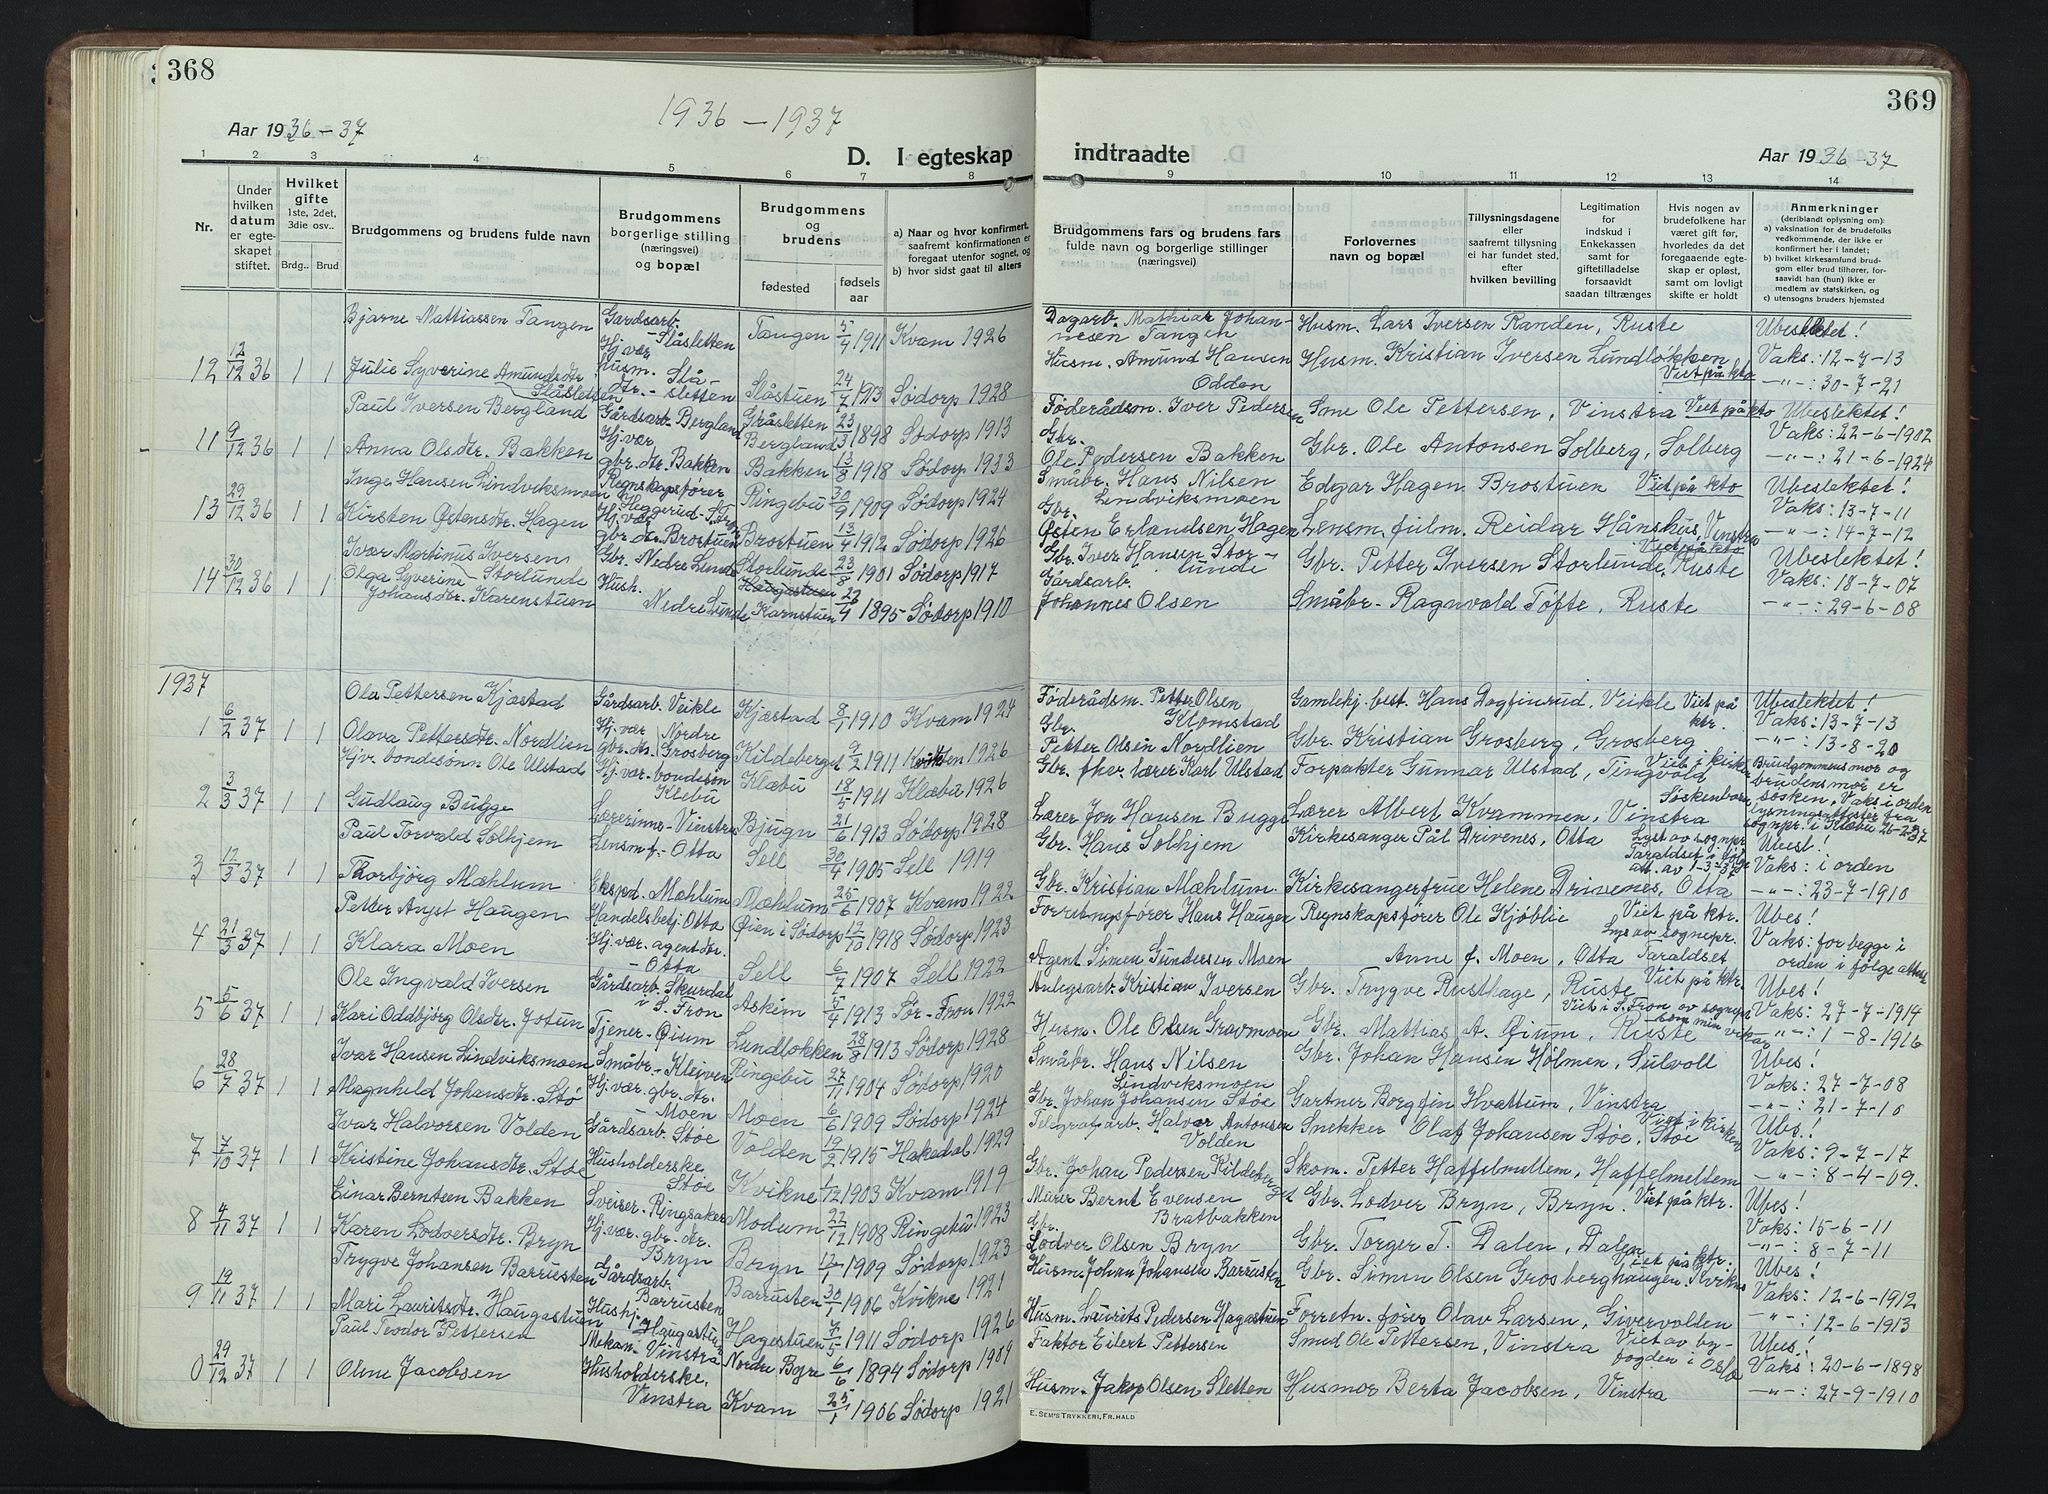 368
1936 – 1937
Aar 1936 – 37
D. I egteskap
1 2 3 4 5 6 7 8
Nr.
Under hvilken datum er egteskapet stiftet.
Hvilket gifte 1ste, 2det, 3die osv..
Brdg.. Brud
Brudgommens og brudens fulde navn
Brudgommens borgerlige stilling (næringsvei) og bopæl
Brudgommens og brudens
fødested
fødsels aar
a) Naar og hvor konfirmert, saafremt konfirmationen er foregaat utenfor sognet, og
b) hvor sidst gaat til alters
Bjarne Mattiassen Tangen Gardsarb. Slåsletten Tangen 5/4 1911 Kvam 1926
12 12/12 36 1 1 Julie Syverine Amundsdtr. Slåsletten Hj.vær husm. dtr. – Slåsletten Slåstuen 24/7 1913 Sødorp 1928
Paul Iversen Bergland Gårdsarb. Bergland Gråsletten Bergland 23/3 1898 Sødorp 1913
11 9/12 36 1 1 Anna Olsdtr. Bakken Hj.vær gbr.dtr. Bakken Bakken 13/8 1918 Sødorp 1933
Inge Hansen Lindviksmoen Regnskapsfører Heggerud – S. Fron Ringebu 30/9 1909 Sødorp 1924
13 29/12 36 1 1 Kirsten Østensdtr. Hagen Hj.vær gbr.dtr Brostuen Brostuen 13/4 1912 Sødorp 1926
Ivar Martinus Iversen Storlunde Gbr. Nedre Lunde Storlunde 23/8 1901 Sødorp 1917
14 30/12 36 1 1 Olga Syverine Johansdtr. Karenstuen Hush. Nedre Lunde Haugastuen Karnstuen 22/4 1895 Sødorp 1910
1937
Ola Pettersen Kjæstad Gårdsarb. Veikle Kjæstad 8/1 1910 Kvam 1924
1 6/2 37 1 1 Olava Pettersdtr. Nordlien Hj.vær Nordre gbr.dtr. Grosberg Kildeberget 9/2 1911 Kvikne 1926
Hjv. bondesønn Ole Ulstad Hj.vær. bondesøn Klebu Klæbu 18/5 1911 Klæbu 1926
2 3/3 37 1 1 Gudlaug Bugge Lærerinne – Vinstra Bjugn 21/6 1913 Sødorp 1928
Paul Torvald Solhjem Lensm.f. – Otta Sell 30/4 1905 Sell 1919
3 12/3 37 1 1 Thorbjörg Mæhlum Eksped. Mæhlum Mæhlum 25/6 1907 Kvam 1922
Petter Anjst Haugen Handelsbetj. Otta Øien i Sødorp 12/10 1918 Sødorp 1923
4 21/3 37 1 1 Klara Moen Hj.vær. agentdtr. – Otta Sell 6/7 1907 Sell 1922
Ole Ingvald Iversen Gårdsarb. Skurdal i S. Fron Askim 5/4 1913 Sør-Fron 1922
5 5/6 37 1 1 Kari Oddbjörg Olsdtr. Jotun Tjener – Øium Lundlokken 28/8 1913 Sødorp 1928
Ivar Hansen Lindviksmoen Småbr. – Kleiven Ringebu 27/11 1904 Sødorp 1920
6 28/7 37 1 1 Magnhild Johansdtr. Stø Hj.vær. gbr.dtr. – Moen Moen 6/6 1909 Sødorp 1924
Ivar Halvorsen Volden Gårdsarb. Støe Volden 19/2 1915 Hakadal 1929
7 7/10 37 1 1 Kristine Johansdtr. Støe Husholderske Støe Kvikne 1/12 1903 Kvam 1919
Einar Berntsen Bakken Sveiser. Ringsaker Modum 22/12 1908 Ringebu 1923
8 4/11 37 1 1 Karen Lodversdtr. Bryn Hj.vær. gbr. dtr. Bryn Bryn 12/1 1909 Sødorp 1923
Trygve Johansen Barrusten Gårdsarb. Barrusten Barrusten 30/1 1906 Kvikne 1921
9 19/11 37 1 1 Mari Lauritsdtr. Haugastuen Hushj. Haugastuen Hagestuen 7/5 1911 Sødorp 1926
Paul Teodor Pettersen Mekan. Vinstra Nordre Byre 6/6 1894 Sødorp 1909
0 29/12 37 1 1 Oline Jacobsen Husholderske. Vinstra Kvam 25/1 1906 Sødorp 1921
369
indtraadte
Aar 1936 – 37
9 10 11 12 13 14
Brudgommens fars og brudens fars fulde navn og borgerlige stillinger (næringsvei)
Forlovernes navn og bopæl
Tillysningsdagene eller saafremt tillysning ei har fundet sted, efter hvilken bevilling
Legitimation for indskud i Enkekassen samt for giftetilladelse forsaavidt saadan tiltrænges
Hvis nogen av brudefolkene har været gift før, hvorledes da det foregaaende egteskap er opløst, samt om lovligt skifte er holdt
Anmerkninger (deriblandt oplysning om):
a) vaksination for de brudefolks vedkommende, der ikke er konfirmert her i landet;
b) hvilket kirkesamfund brudgom eller brud tilhører, forsaavidt han (hun) ikke er medlem av statskirken, og
c) utensogns bruders hjemsted
Dagarb. Mathias Johannesen Tangen Husm. Lars Iversen Randen, Ruste Ubeslektet! Vaks: 12-7-13
Husm. Amund Hansen Odden Husm. Kristian Iversen Lundløkken Viet på kto –"–: 30-7-21
Føderådsm. Iver Pedersen Sme Ole Pettersen, Vinstra Viet på kto Ubeslektet! Vaks: 22-6-1902
Gbr. Ole Pedersen Bakken Gbr. Ole Antonsen Solberg, Solberg –"–: 21-6-1924
Småbr. Hans Nilsen Lendviksmoen Edgar Hagen Brostuen Viet på kto Ubeslektet! Vaks: 13-7-11
Gbr. Østen Erlandsen Hagen Lensm. fulm. Reidar Hånshus, Vinstra –"–: 14-7-12
Gbr. Iver Hansen Storlunde Gbr. Petter Iversen Storlunde, Ruste Viet på kto Ubeslektet! Vaks: 18-7-07
Gårdsarb. Johannes Olsen Småbr. Ragnvald Tofte, Ruste –"–: 29-6-08
Føderådsm. Petter Olsen Klomstad Gamlehj. best. Hans Dogfinrud, Veikle Viet på ktr. Ubeslektet! Vaks: 13-7-13
Gbr. Petter Olsen Nordlien Gbr. Kristian Grosberg, Grosberg –"–: 13-8-20
Gbr. fhv. lærer Karl Ulstad Forpakter Gunnar Ulstad, Tingvold Viet i kirken Brudgommens mor og brudens mor er søsken. Vaks i orden
Lærer Jon Hansen Bugge Lærer Albert Kvammen, Vinstra Søskenbarn lysningsattester fra sognpr. i Klæbu 26-2-37
Gbr. Hans Solhjem Kirkesanger Pål Drivenes, Otta Lyst av sognepr. Taraldset i følge att. av 1-3-37 Ubesl. Vaks: i orden
Gbr. Kristian Mæhlum Kirkesangerfrue Helene Drivenes, Otta –"–: 23-7-1910
Forretngsfører Hans Haugen Regnskapsfører Ole Kjøblie Viet på ktr. Lys av sognepr. Taraldset Ubes! Vaks: for begge i orden i følge attest
Agent Simen Gundersen Moen Anne f. Moen, Otta
Anligsarb. Kristian Iversen Gbr. Trygve Rustlage, Ruste Viet på ktr. Ubes! Vaks: 27-7-1914
Husm. Ole Olsen Gravmoen Gbr. Mattias A. Øium, Ruste Viet i S. Fron av sognepr. som min vikar –"–: 1-8-1916
Småbr. Hans Nilsen Lindviksmoen Gbr. Johan Hansen Holmen, Sulvoll Ubes! Vaks: 27-7-08
Gbr. Johan Johansen Støe Gartner Borgfin Hvattum, Vinstra –"–: 21-7-10
Telegrafarb. Halvor Antonsen Volden Snekker Olaf Johansen Støe, Støe Viet i kirken Ubs! Vaks: 9-7-17
Gbr. Johan Pedersen Kildeberget Skom. Petter Haffelmellem, Haffelmellem –"–: 8-4-09.
Murer Bernt Evensen Bratbakken Gbr. Lodver Bryn, Bryn. Viet på ktr. Ubes! Vaks: 15-6-11
Gbr. Lodver Olsen Bryn Gbr. Torger T. Dalen, Dalen –"–: 8-7-11
Husm. Johan Johansen Barrusten Gbr. Simen Olsen Grosberghaugen, Kvikne Viet på ktr. Ubes! Vaks: 12-6-1912
Husm. Laurits Pedersen Hagastuen Forretn. fører Olav Larsen, Sivervolden –"–: 12-6-1913
Faktor Eilert Pettersen Smed Ole Pettersen, Vinstra Viet av byfogden i Oslo Ubes! Vaks: 20-6-1898
Husm. Jakop Olsen Sletten Husmor Berta Jacobsen, Vinstra –"–: 27-9-1910
E. SEM'S TRYKKERI, FR.HALD